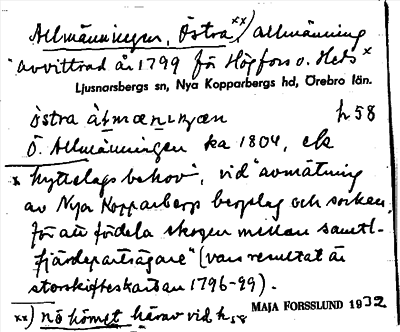 Allmänningen, Östra xx) allmänning
"avvittrad år 1799 för Högfors o. Hels x
Ljusnarsbergs sn, Nya Kopparbergs hd, Örebro län.
östra àlmæniŋæn h 58
Ö. Allmänningen ka 1804, ek
x hyttelags behov", vid "avmätning
av Nya Kopparbergs bergslag och socken
för att fördela skogen mellan samtl-
fjärdepartsägare" (vars resultat är
storskifteskartan 1796-99).
xx) nö hörnet härav vid h 58
MAJA FORSSLUND 1932